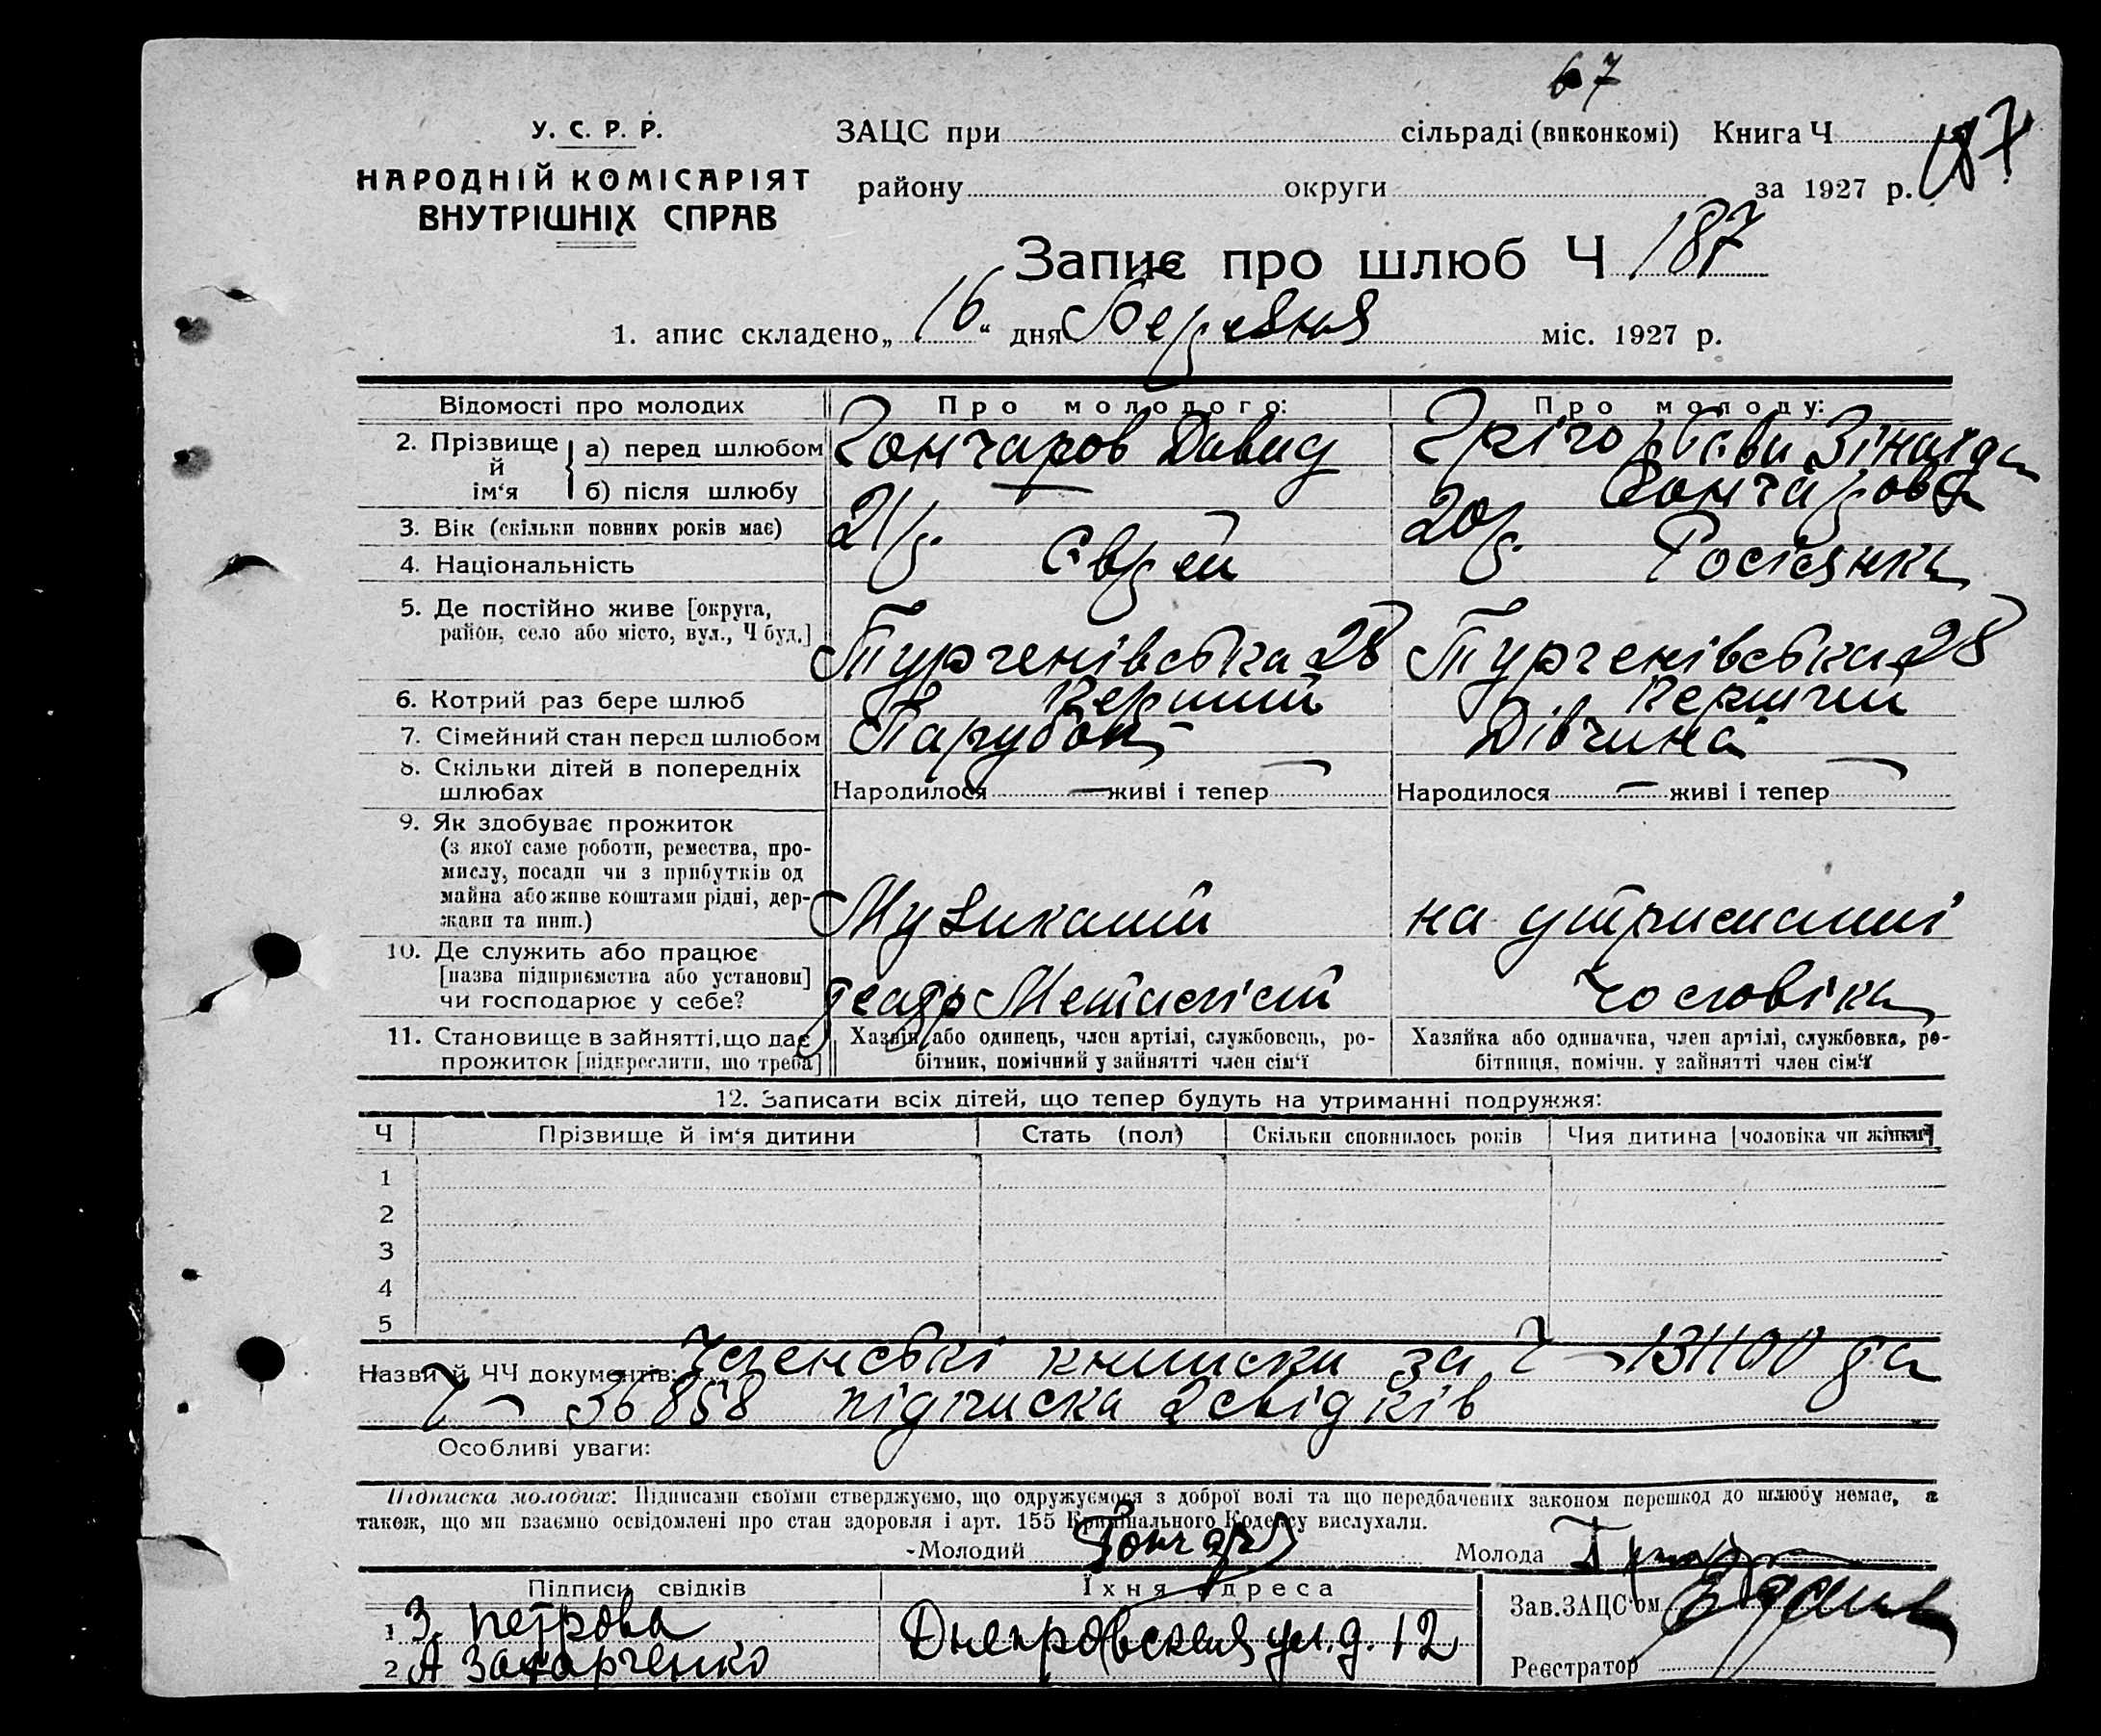 67
У. С. Р. Р.
НАРОДНІЙ КОМІСАРІЯТ
ВНУТРІШНІХ СПРАВ
ЗАЦС при сільраді (виконкомі) Книга Ч
району округи за 1927 р. 187
Запис про шлюб Ч 187
1. апис складено „16“ дня Березня міс. 1927 р.
Відомості про молодих Про молодого: Про молоду:
2. Прізвище й ім‘я а) перед шлюбом Гончаров Давид Грігорьєва Зінаїда
б) після шлюбу — Гончарова
3. Вік (скільки повних років має) 21 р. 20 р.
4. Національність Єврей Росіянка
5. Де постійно живе [округа,
район, село або місто, вул., Ч буд.] Тургенівська 28 Тургенівська 28
6. Котрий раз бере шлюб Перший Перший
7. Сімейний стан перед шлюбом Парубок Дівчина
8. Скільки дітей в попередніх
шлюбах Народилося — живі і тепер — Народилося — живі і тепер —
9. Як здобуває прожиток
(з якої саме роботи, ремества, про-
мислу, посади чи з прибутків од
майна або живе коштами рідні, дер-
жави та инш.) Музикант на утриманні
10. Де служить або працює
[назва підприємства або установи]
чи господарює у себе? театр чоловіка
11. Становище в зайнятті, що дає
прожиток [підкреслити, що треба]
Хазяїн або одинець, член артілі, службовець, ро-
бітник, помічний у зайнятті член сім‘ї
Хазяйка або одиначка, член артілі, службовка, ро-
бітниця, помічн. у зайнятті член сім‘ї
12. Записати всіх дітей, що тепер будуть на утриманні подружжя:
Ч Прізвище й ім‘я дитини Стать (пол) Скільки сповнилось років Чия дитина [чоловіка чи жінки]
1
2
3
4
5
Назви й ЧЧ документів: Членські книжки за Ч 131100 та
Ч 36858 підписка 2 свідків
Особливі уваги:
Підписка молодих: Підписами своїми стверджуємо, що одружуємося з доброї волі та що передбачених законом перешкод до шлюбу немає, а
також, що ми взаємно освідомлені про стан здоровля і арт. 155 Кримінального Кодексу вислухали.
Молодий Гончаров Молода
Підписи свідків Їхня адреса Зав. ЗАЦС‘ом
1 З. Петрова Днепровская ул. д. 12
2 А Захарченко Реєстратор